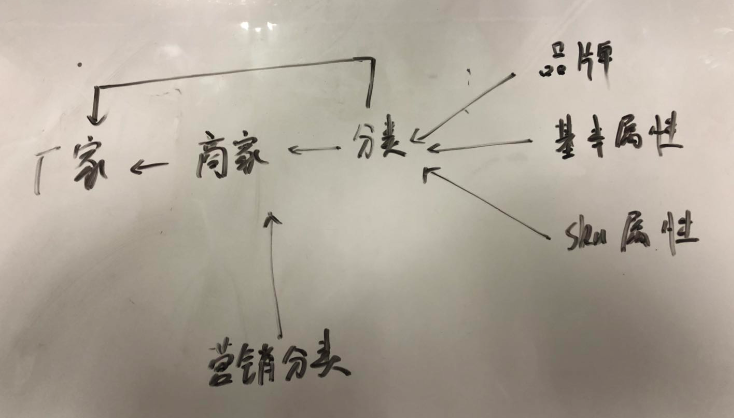 品牌
厂家
商家
分类
基本属性
sku属性
营销分类